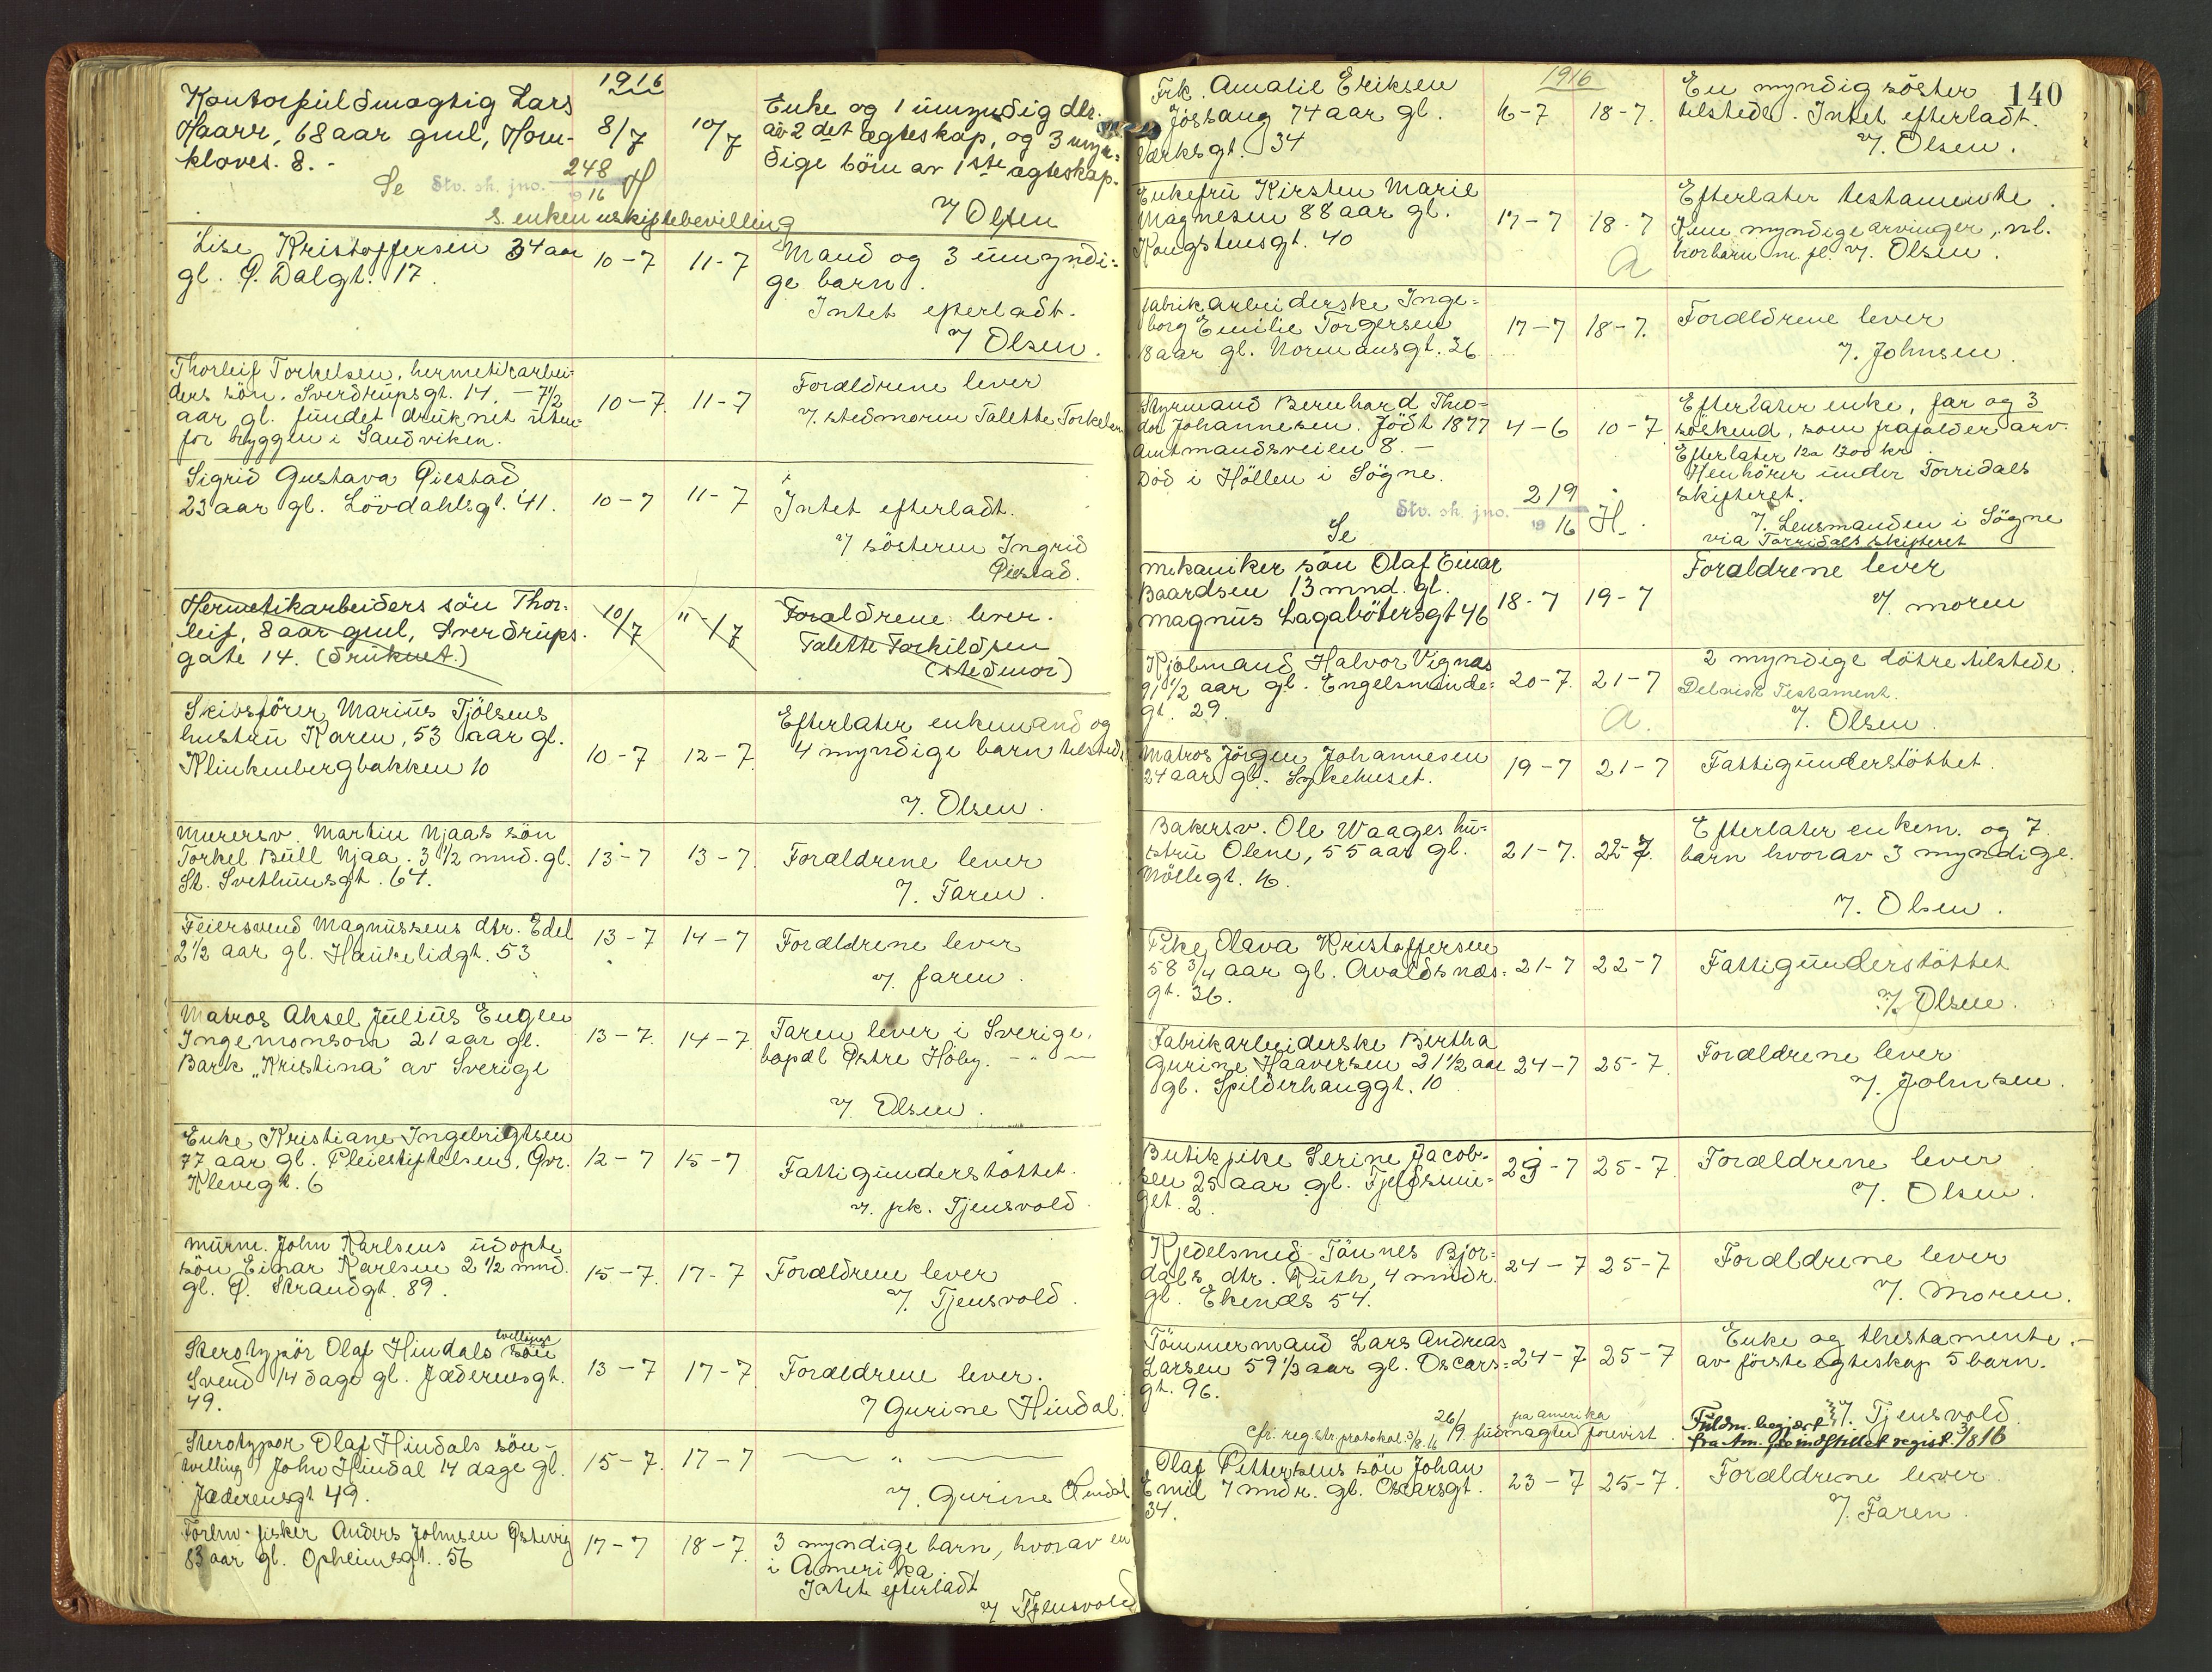 1916
Kontorfuldmægtig Lars
Haarr, 68 aar gml, Horn-
kloves. 8. -
8/7
10/7
Enke og 1 umyndig dtr.
av 2det ægteskap, og 3 myn=
dige børn av 1ste ægteskap.
Se Stv. sk. jno. 248/1916 H
s. enken uskiftebevilling
v/ Olsen
Lise Kristoffersen 34 aar
gl. Ø. Dalgt. 17.
10-7
11-7
Mand og 3 umyndi=
ge barn.
Intet efterladt.
v/ Olsen.
Thorleif Torkelsen, hermetikarbei-
ders søn. Sverdrupsgt. 14. - 7 1/2
aar gl. fundet druknet uten-
for bryggen i Sandviken.
10-7.
11-7
Forældrene lever
v. stedmoren Talette Torkelsen
Sigrid Gustava Qiestad
23 aar gl. Lövdahlsgt. 41.
10-7
11-7
Intet efterladt.
v/ søsteren Ingrid
Qiestad.
Hermetikarbeiders søn Thor-
leif, 8 aar gml, Sverdrups-
gate 14. (druknet.)
10/7
11/7
Forældrene lever.
Talette Torkildsen
(stedmor)
Skibsfører Marius Tjölsens
hustru Karen, 53 aar gl.
Klinkenbergbakken 10
10-7
12-7.
Efterlater enkemand og
4 myndige barn tilstede
v. Olsen.
Murersv. Martin Njaas søn
Torkel Bull Njaa. 3 1/2 mnd. gl.
St. Svithunsgt. 64.
13-7
13-7.
Forældrene lever
v. Faren.
Feiersvend Magnussens dtr. Edel
2 1/2 aar gl. Haukelidgt. 53
13-7
14-7
Forældrene lever
v. faren.
Matros Aksel Julius Eugen
Ingemonsom 21 aar gl.
Bark "Kristina" av Sverige
13-7.
14-7.
Faren lever i Sverige.
bopæl Østre Höby. - " -
v/ Olsen.
Enke Kristiane Ingebrigtsen
77 aar gl. Pleiestiftelsen, Øvr.
Klevegt. 6
12-7
15-7
Fattigunderstöttet.
v. frk. Tjensvold.
Murm. John Karlsens udøpte
søn Einar Karlsen 2 1/2 mnd.
gl. Ø. Strandgt. 89.
15-7.
17-7
Forældrene lever
v. Tjensvold.
tvilling
Sterotypör Olaf Hindals søn
Svend 14 dage gl. Jæderensgt.
49.
13-7
17-7.
Forældrene lever.
v/ Gurine Hindal.
Sterotypør Olaf Hindals søn-
tvilling John Hindal 14 dage gl.
Jæderensgt 49.
15-7.
17-7
— " —
v. Gurine Hindal
Forhv. fisker Anders Johnsen Østevig
83 aar gl. Opheimsgt. 56
17-7
18-7.
3 myndige barn, hvorav en
i Amerika.
Intet efterladt
v/ Tjensvold
1916
140
Frk. Amalie Eriksen
Jössang 74 aar gl.
Værksgt. 34
16-7
18-7.
En myndig søster
tilstede. Intet efterladt.
v. Olsen.
Enkefru Kirsten Marie
Magnesen 88 aar gl.
Kongstensgt. 40
17-7
18-7
a
Efterlater testamente.
Kun myndige arvinger, nl.
brorbarn m. fl. v. Olsen.
Fabrikarbeiderske Inge=
borg Emilie Torgersen
18 aar gl. Normansgt. 36
17-7
18-7.
Forældrene lever
v. Johnsen.
Styrmand Bernhard Theo-
dor Johannesen. Födt 1877
Amtmandsveien 8. -
Död i Höllen i Sögne.
4-6
10-7.
Efterlater enke, far og 3
søskend, som frafalder arv.
Efterlater 12a 1300 kr.
Henhörer under Torridals
skifteret.
Se Stv. sk. jno. 219/1916 H.
v. Lensmanden i Sögne
via Torridals skifteret
Mekaniker søn Olaf Einar
Baardsen 13 mnd. gl.
Magnus Lagabötersgt 46
18-7
19-7
Forældrene lever
v. moren
Kjölmand Halvor Vignæs
91 1/2 aar gl. Engelsminde=
gt. 29.
20-7.
21-7
a.
2 myndige døtre tilstede.
Delvisk Testament.
v. Olsen.
Matros Jörgen Johannesen
24 aar gl. Sykehuset.
19-7
21-7
Fattigunderstöttet.
Bakersv. Ole Waages hu=
stru Olene, 55 aar gl.
Möllegt. 16.
21-7.
22-7.
Efterlater enkem. og 7
barn hvorav 3 myndige.
v. Olsen.
Pike Olava Kristoffersen
58 3/4 aar gl. Avaldsnæs=
gt. 36.
21-7
22-7
Fattigunderstöttet
v. Olsen.
Fabrikarbeiderske Bertha
Gurine Haaversen 21 1/2 aar
gl. Spilderhauggt. 10
24-7
25-7.
Forældrene lever
v. Johnsen.
Butikpike Serine Jacob-
sen 25 aar gl. Fjeldsmu=
get. 2.
23-7
25-7.
Forældrene lever
v. Olsen.
Kjedelsmed Tönnes Bjor=
dals dtr. Ruth, 4 mndr.
gl. Ekenæs 54.
24-7
25-7
Forældrene lever
v. Moren.
Tömmermand Lars Andreas
Larsen 59 1/2 aar gl. Oscars=
gt. 96.
24-7
25-7
Enke og thestamente.-
av förste egteskap 5 barn.
v. Tjensvold.
cfr. registr. protokol 3/8.16 26/9. fuldmagten fra Amerika forevist.
Fuldm. begjært
fra Am. Fremdstillet regist. 3/8 16
Olaf Pettersens søn Johan
Emil 7 mndr. gl. Oscarsgt.
34.
23-7
25-7.
Forældrene lever
v. Faren.